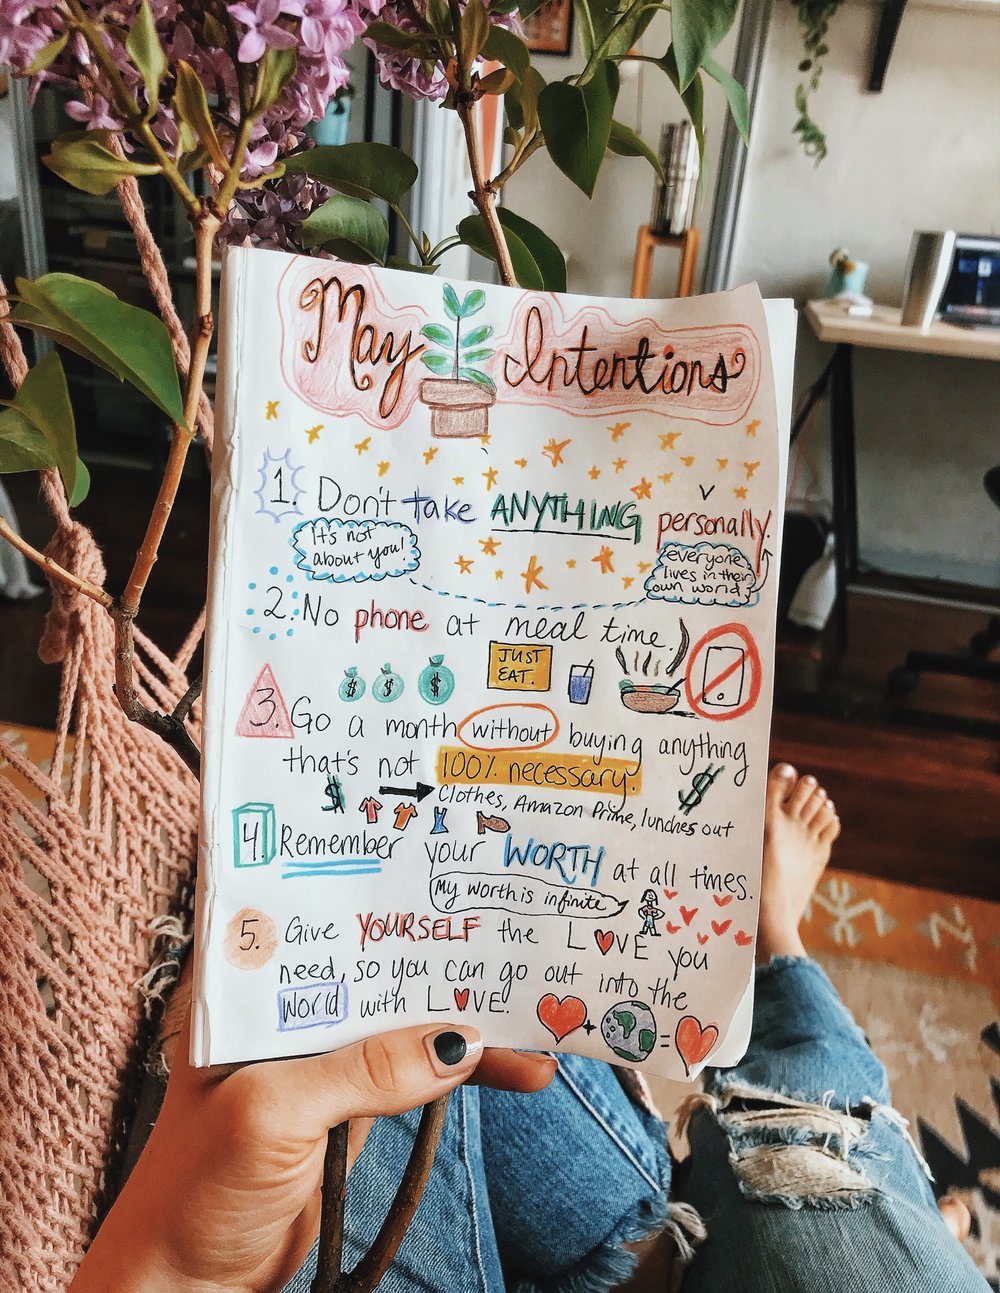 May Intentions
1. Don't take ANYTHING personally.
It's not
about you!
everyone
lives in their
own world
2. No phone at meal time.
JUST
EAT.
$ $ $
3. Go a month without buying anything
that's not 100% necessary.
$ $
Clothes, Amazon Prime, lunches out
4. Remember your WORTH at all times.
My worth is infinite
5. Give YOURSELF the L♥VE you
need, so you can go out into the
world with L♥VE.
+ =